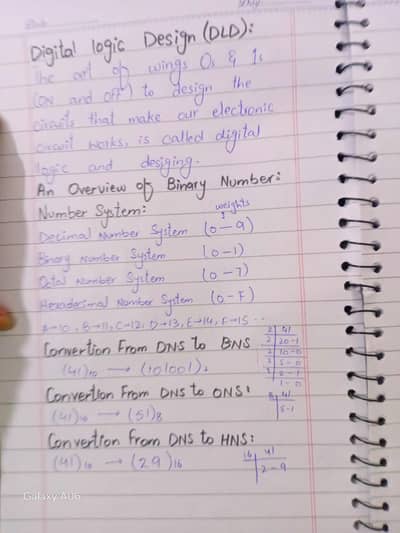 Digital logic Design (DLD):
The art of wings 0s & 1s
(ON and OFF) to design the
circuits that make our electronic
circuit works, is called digital
logic and desiging.
An Overview of Binary Number:
Number System: weights
Decimal Number System (0-9)
Binary Number System (0-1)
Octal Number System (0-7)
Hexadecimal Number System (0-F)
A→10, B→11, C→12, D→13, E→14, F→15...
Convertion From DNS to BNS
2 41
2 20-1
2 10-0
2 5-0
2 2-1
1-0
(41)10 → (101001)2
Convertion From DNS to ONS:
8 41
5-1
(41)10 → (51)8
Convertion From DNS to HNS:
(41)10 → (29)16
16 41
2-9
Galaxy A06